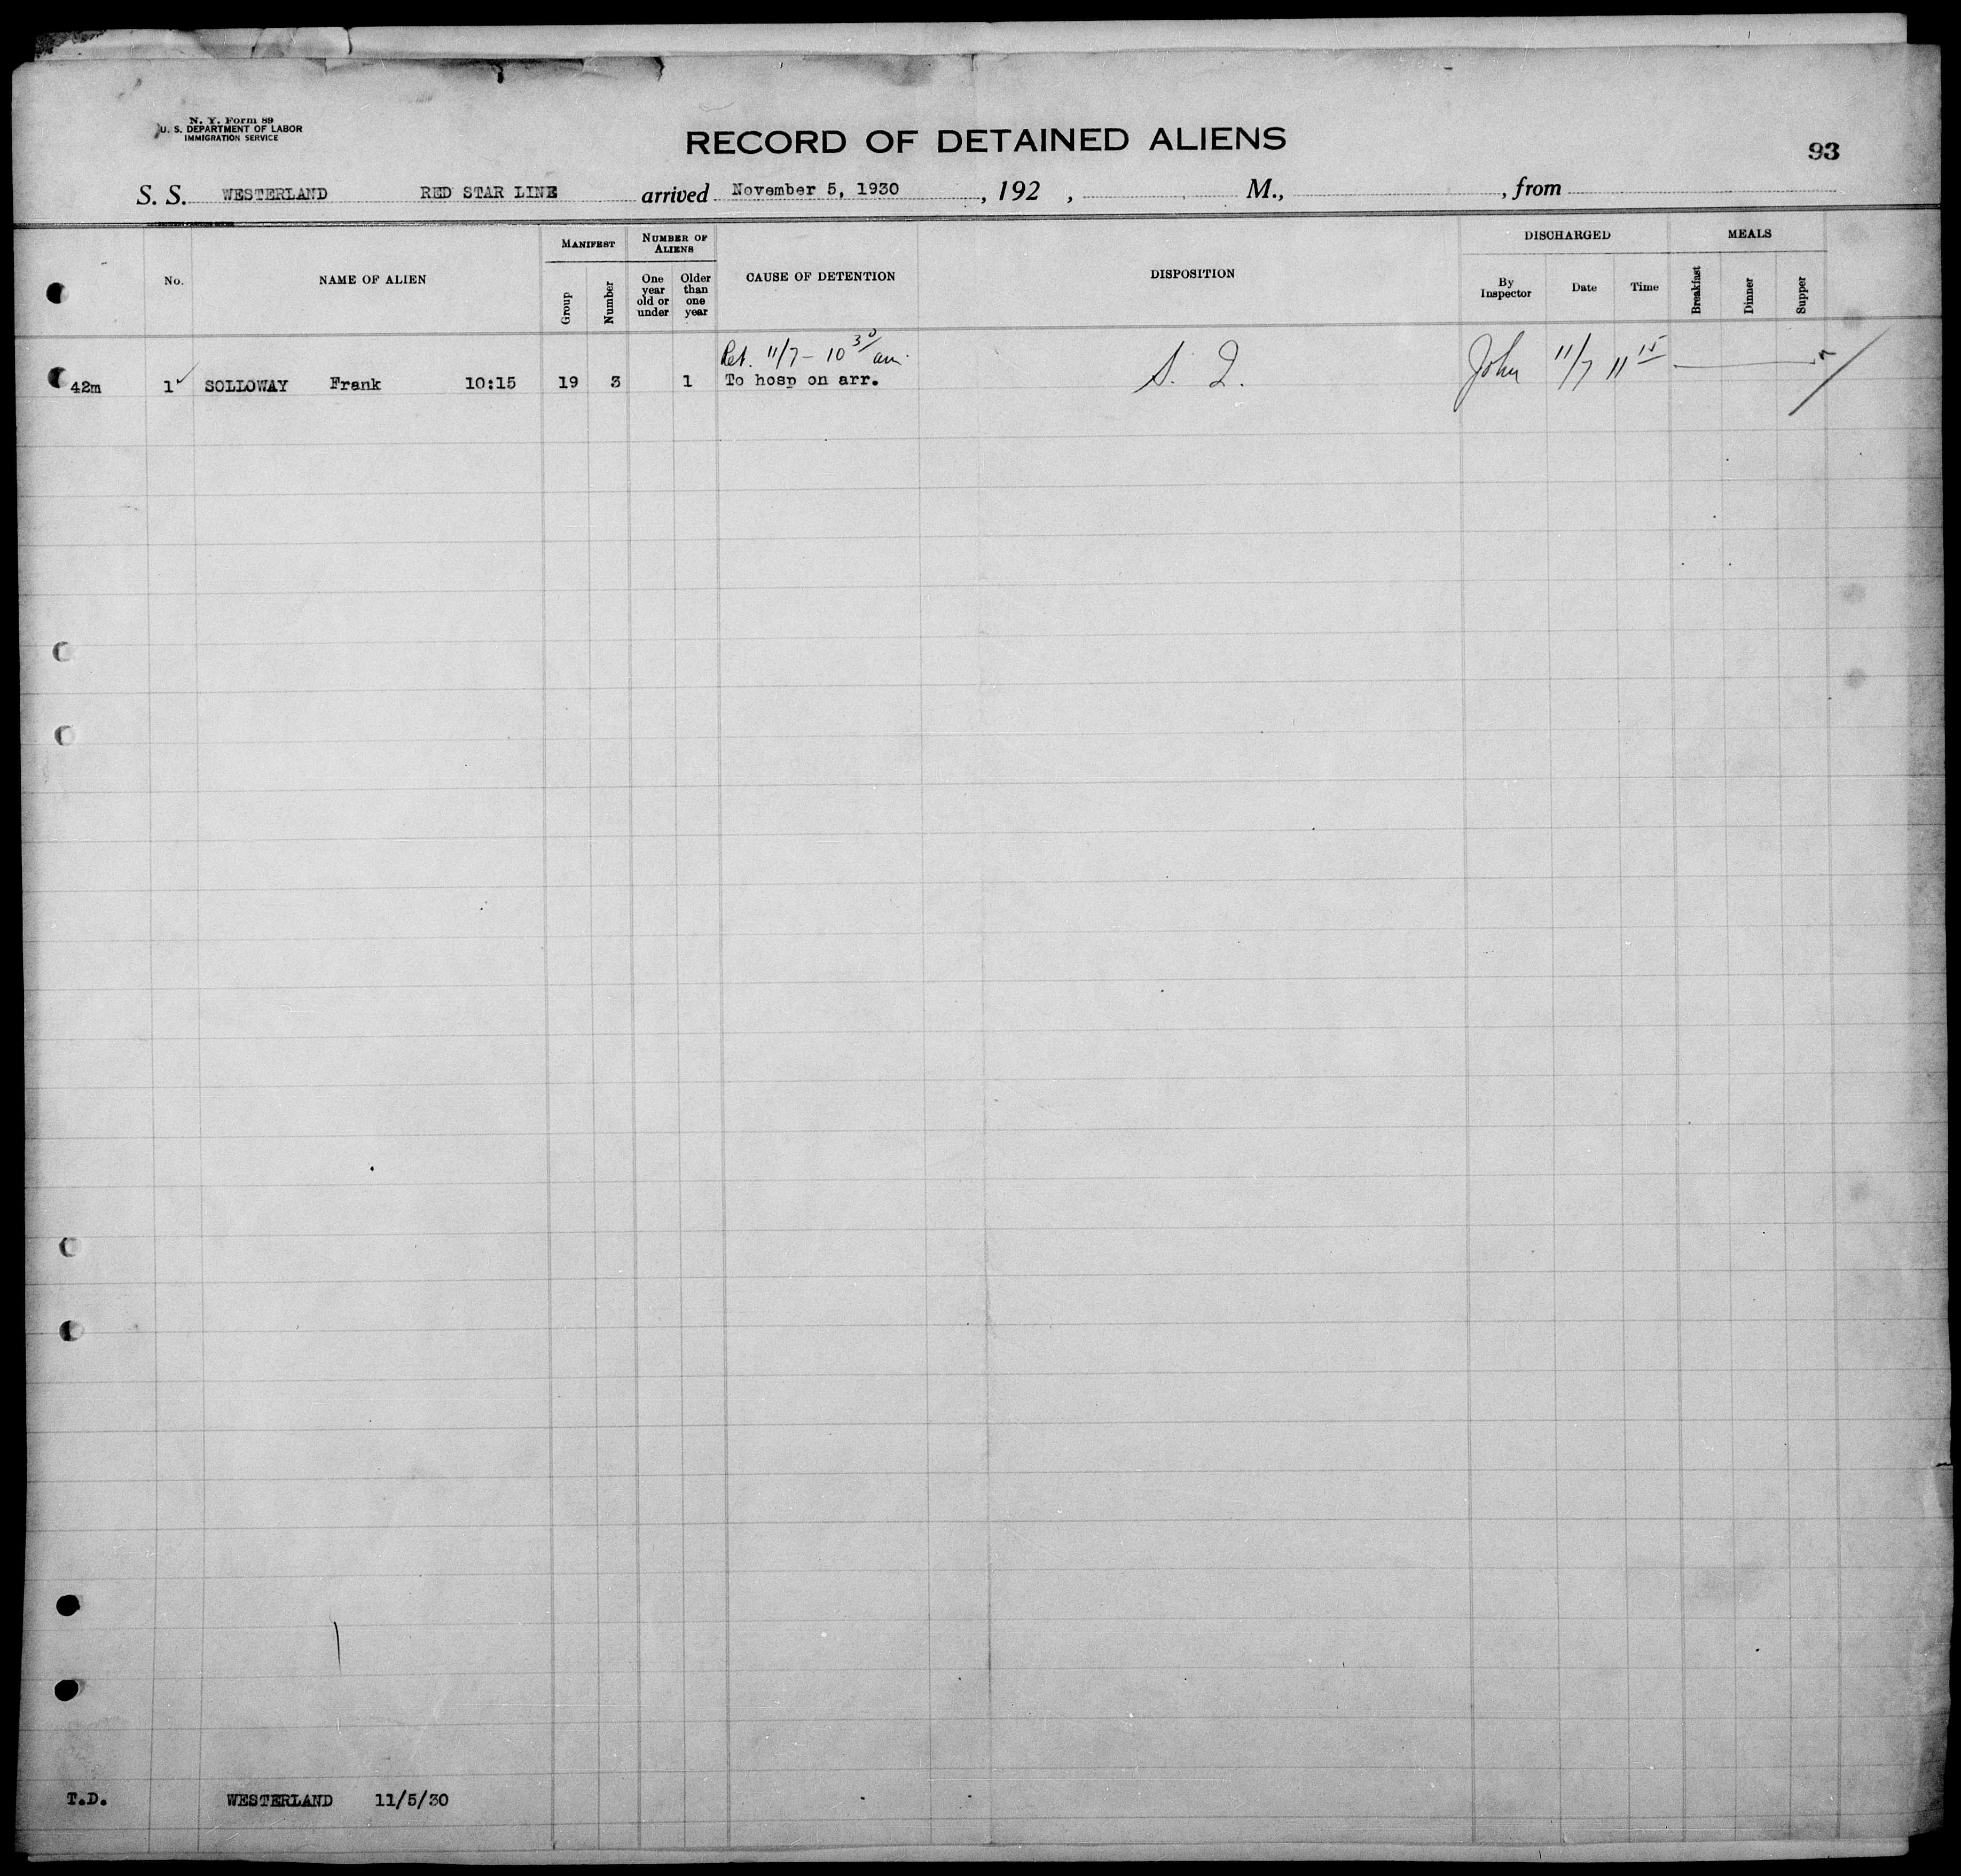 N. Y. Form 89
U. S. DEPARTMENT OF LABOR
IMMIGRATION SERVICE
RECORD OF DETAINED ALIENS
93
S. S. WESTERLAND RED STAR LINE arrived November 5, 1930, 192 , M., , from
No. NAME OF ALIEN MANIFEST Group Number NUMBER OF ALIENS One year old or under Older than one year CAUSE OF DETENTION DISPOSITION DISCHARGED By Inspector Date Time MEALS Breakfast Dinner Supper
Ret. 11/7 - 10 30/ am.
42m 1 ✓ SOLLOWAY Frank 10:15 19 3 1 To hosp on arr. John 11/7 11 15
T.D. WESTERLAND 11/5/30